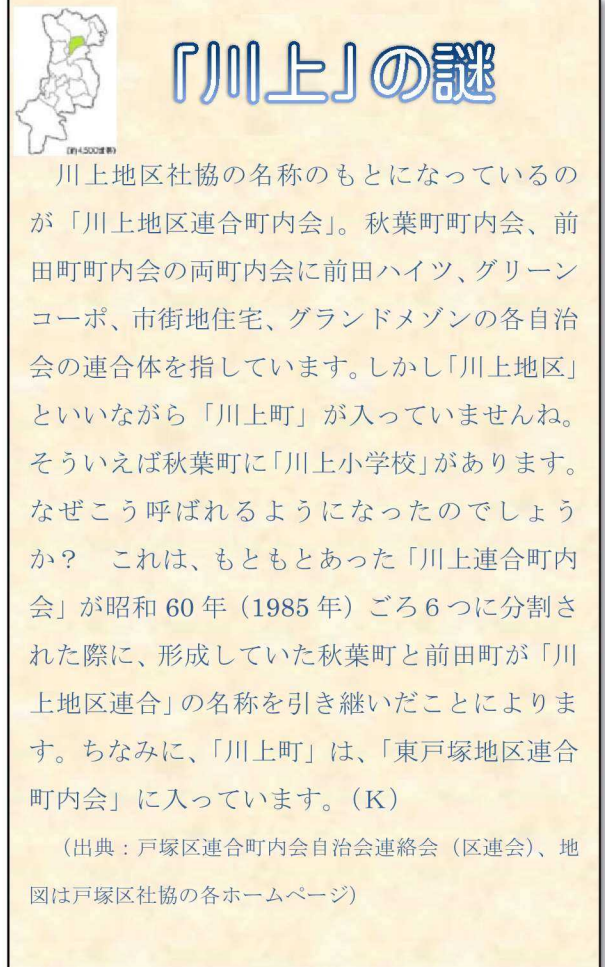 「川上」の謎
(約4,500世帯)
川上地区社協の名称のもとになっているの
が「川上地区連合町内会」。秋葉町町内会、前
田町町内会の両町内会に前田ハイツ、グリーン
コーポ、市街地住宅、グランドメゾンの各自治
会の連合体を指しています。しかし「川上地区」
といいながら「川上町」が入っていませんね。
そういえば秋葉町に「川上小学校」があります。
なぜこう呼ばれるようになったのでしょう
か？　これは、もともとあった「川上連合町内
会」が昭和 60 年（1985 年）ごろ６つに分割さ
れた際に、形成していた秋葉町と前田町が「川
上地区連合」の名称を引き継いだことによりま
す。ちなみに、「川上町」は、「東戸塚地区連合
町内会」に入っています。（K）
（出典：戸塚区連合町内会自治会連絡会（区連会）、地
図は戸塚区社協の各ホームページ）